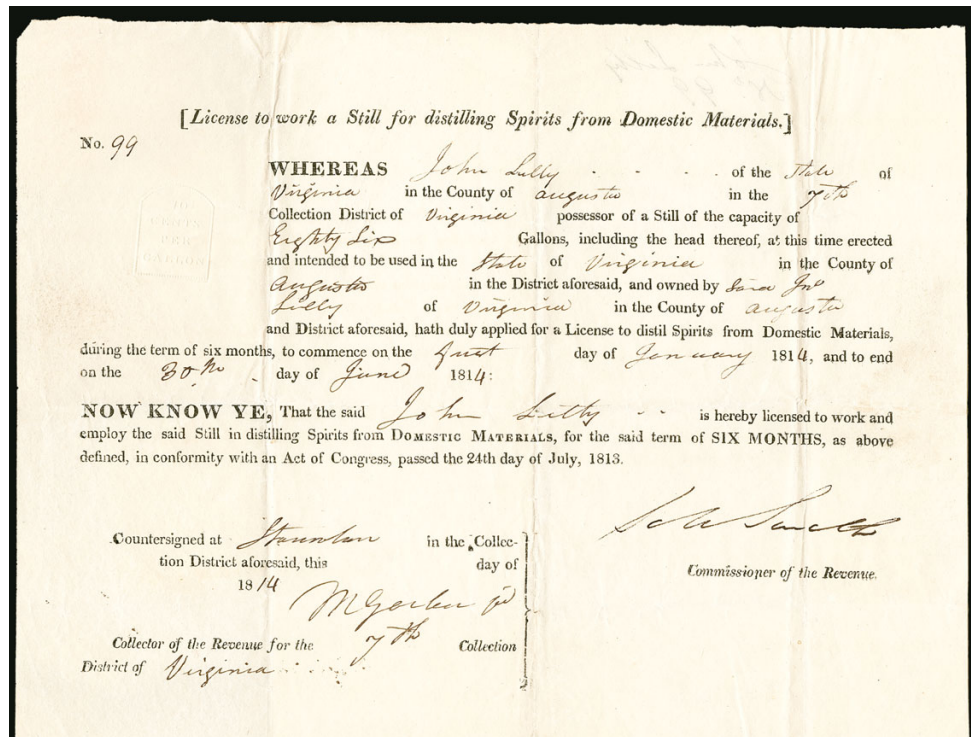 [License to work a Still for distilling Spirits from Domestic Materials.]
No. 99
WHEREAS John Lilly of the State of
Virginia in the County of augusta in the 7th
Collection District of Virginia possessor of a Still of the capacity of
Eighty Six Gallons, including the head thereof, at this time erected
and intended to be used in the State of Virginia in the County of
Augusta in the District aforesaid, and owned by Said Jno
Lilly of Virginia in the County of augusta
and District aforesaid, hath duly applied for a License to distil Spirits from Domestic Materials,
during the term of six months, to commence on the first day of January 1814, and to end
on the 30th day of June 1814:
NOW KNOW YE, That the said John Lilly is hereby licensed to work and
employ the said Still in distilling Spirits from DOMESTIC MATERIALS, for the said term of SIX MONTHS, as above
defined, in conformity with an Act of Congress, passed the 24th day of July, 1813.
Countersigned at Staunton in the Collec-
tion District aforesaid, this day of
1814
Commissioner of the Revenue.
Collector of the Revenue for the 7th Collection
District of Virginia